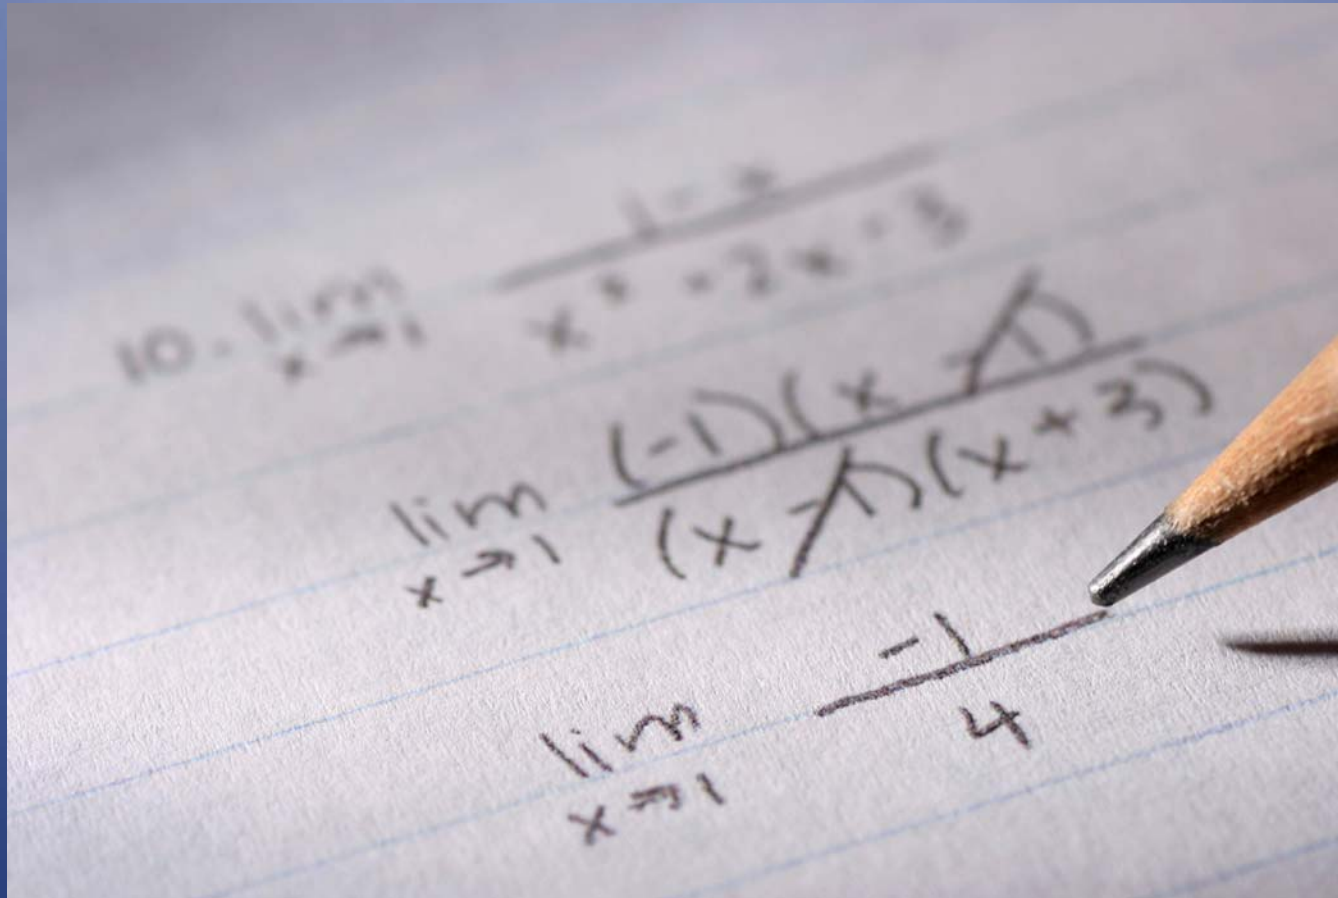 10. lim x→1 (1-x)/(x² + 2x - 3)
lim x→1 (-1)(x-1)/(x-1)(x+3)
lim x→1 -1/4